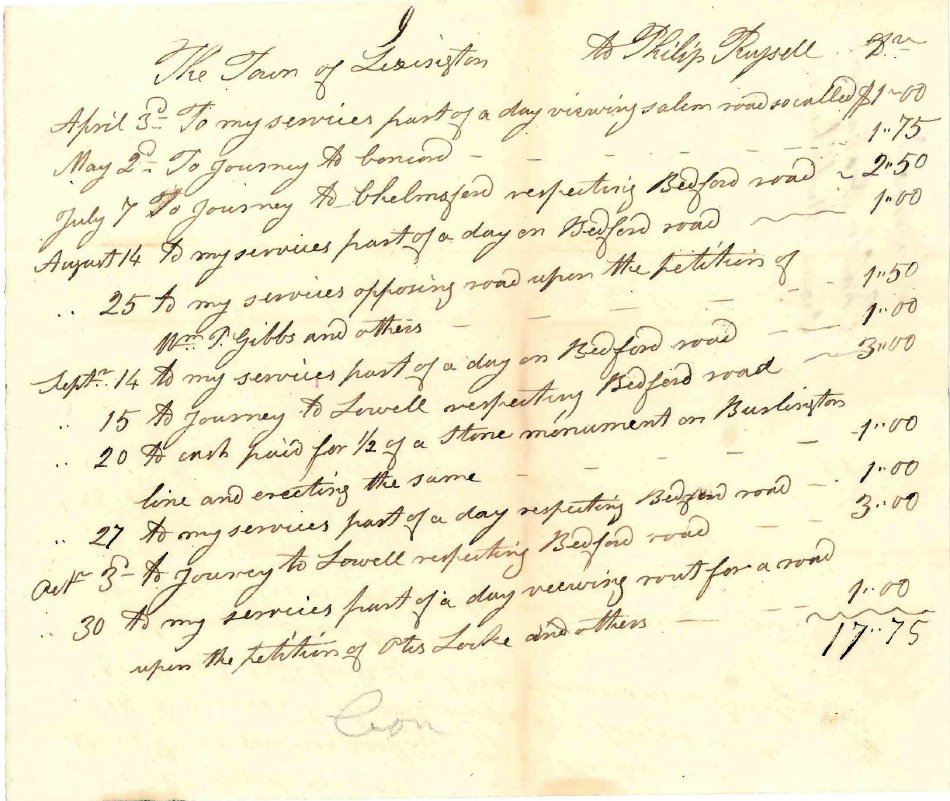 9
The Town of Lexington to Philip Russell Dr
April 3d To my services part of a day viewing salem road so called $1"00
May 2d To Journey to concord - - - - 1"75
July 7 To Journey to Chelmsford respecting Bedford road ~ 2"50
August 14 to my services part of a day on Bedford road 1"00
" 25 to my services opposing road upon the petition of
Wm P. Gibbs and others - - - - 1"50
Septr 14 to my services part of a day on Bedford road - - 1"00
" 15 to Journey to Lowell respecting Bedford road 3"00
" 20 to cash paid for 1/2 of a Stone monument on Burlington
line and erecting the same - - - - 1"00
" 27 to my services part of a day respecting Bedford road - 1"00
Octr 3d to Journey to Lowell respecting Bedford road - - - 3"00
" 30 to my services part of a day veewing rout for a road
upon the petition of Otis Locke and others - - - 1"00
17"75